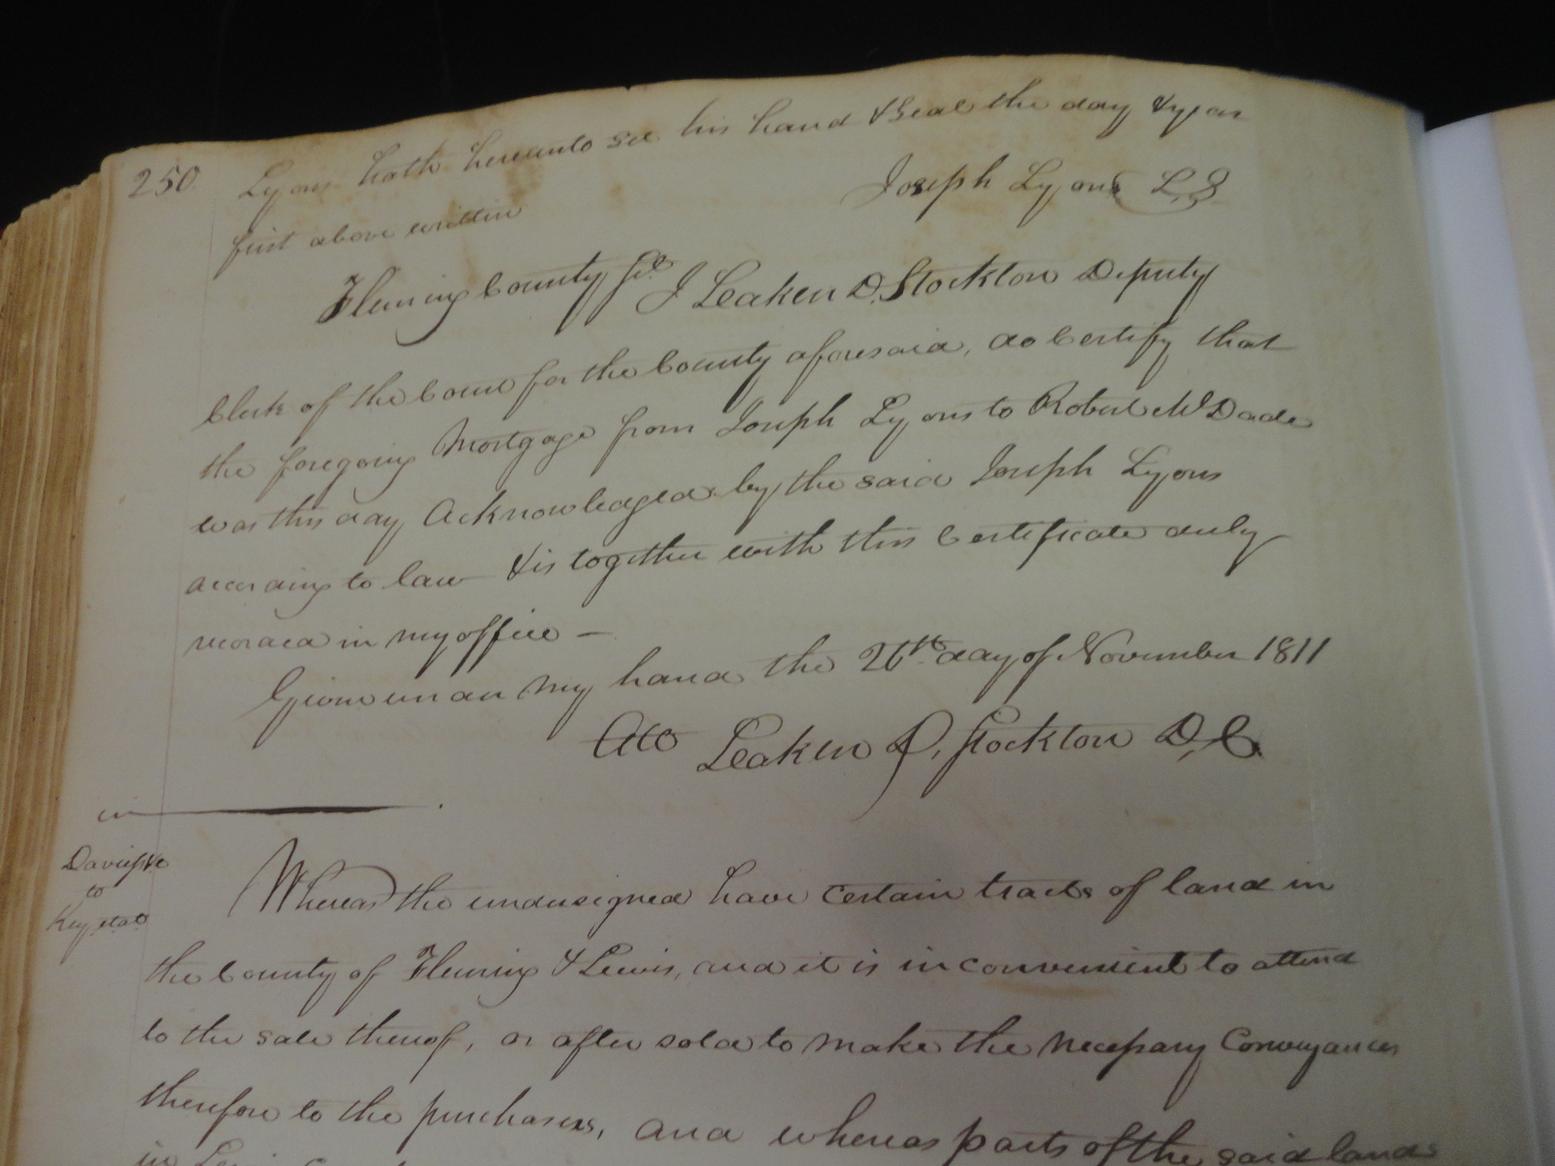 250
Lyons hath hereunto set his hand & Seal the day & year
first above written
Joseph Lyons L.S
Fleming County Sct. I Leaken D. Stockton Deputy
Clerk of the Court for the County aforesaid, do Certify that
the foregoing Mortgage from Joseph Lyons to Robert McDade
was this day Acknowledged by the said Joseph Lyons
according to law & is together with this Certificate duly
recorded in my office —
Given under my hand the 26th day of November 1811
Leaken D. Stockton D.C.
to
Whereas the undersigned have certain tracts of land in
the County of Fleming & Lewis, and it is inconvenient to attend
to the sale thereof, or after sold to make the necessary Conveyances
therefore to the purchasers, and whereas parts of the said lands
in